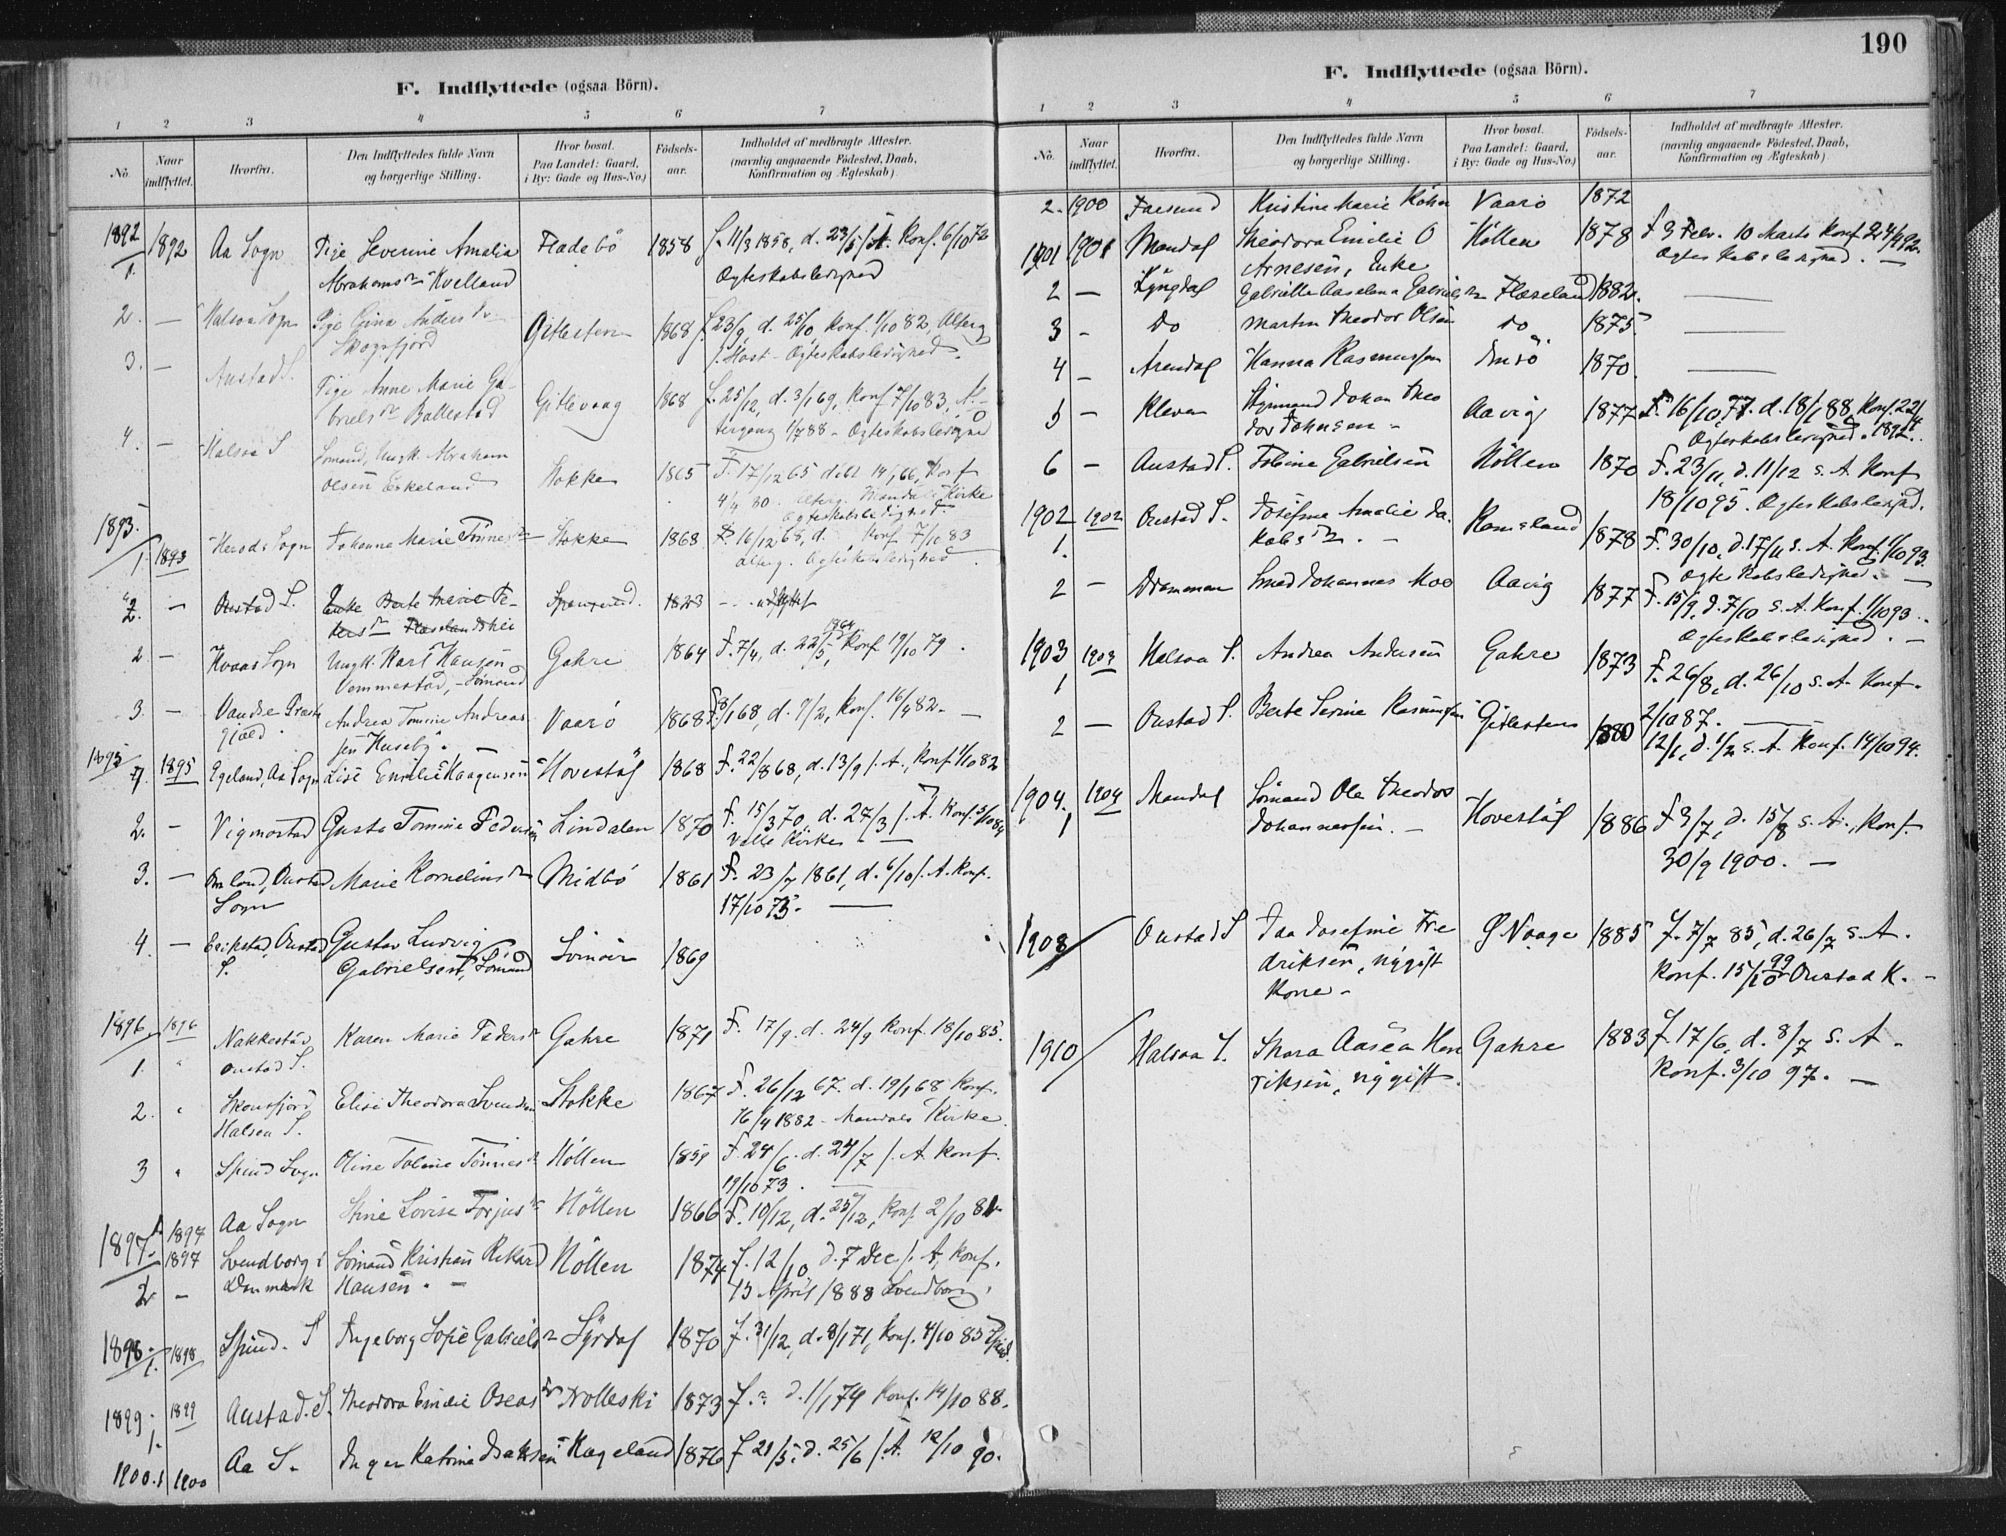 F. Indflyttede (ogsaa Börn).
1 2 3 4 5 6 7
No. Naar indflyttet. Hvorfra. Den Indflyttedes fulde Navn og borgerlige Stilling. Hvor bosat. Paa Landet: Gaard, i By: Gade og Hus-No.) Födsels-aar. Indholdet af medbragte Attester. (navnlig angaaende Födested, Daab, Konfirmation og Ægteskab)
1892 1. 1892 Aa Sogn Pige Severine Amalia Fladebö 1858 f. 11/3 1858, d. 23/5 s. A. Konf. 6/10 72
Abrahamsdr Kvelland Ægteskabsledighed
2. — Halsaa Sogn Pige Gina Andersdr Gitlesten 1868 f. 23/9 d. 25/10 Konf. 1/10 82, Alterg.
Skogsfjord Høst - Ægteskabsledighed.
3. — Austad S. Pige Anne Marie Ga- Gitlevaag 1868 f. 25/12, d. 3/1 69, Konf 7/10 83, Al-
brielsdr Ballestad tergang 1/7 88 - Ægteskabsledighed
4. — Halsaa S Sømand, Ungk. Abraham Stokke 1865 F. 17/12 65 döbt 14/1 66, Konf
Olsen Eskeland 4/4 80. alterg. Mandals Kirke
Ægteskabsledighed.
1893. 1. 1893 Herads Sogn Johanne Marie Tönnesdr Stokke 1868 F. 16/12 68, d. Konf 7/10 83
alterg. Ægteskabsledighed
2. — Oustad S. Enke Berte Marie Pe- 1823 -.- udflyttet
dersdr
2 — Kvaas Sogn Ungk. Karl Hansen Gahre 1864 F. 7/4, d. 22/5 1864, Konf 19/10 79.
Vemmestad, - Sömand
3. — Vandse Præste Andrea Tomine Andreas Vaarö 1868 F. 8/1 68, d. 9/2, Konf. 16/4 82. —
gjæld. sen Huseby.
1895 1. 1895 Egeland, Aa Sogn Lise Emilie Haagensen Hovestöl 1868 F. 22/8 68, d. 13/9 s. A., Konf 1/10 82
2. — Vigmostad Gusta Tomine Pedersen Lindalen 1870 F. 15/3 70, d. 27/3 s. A. Konf. 5/10 84
Valle Kirke. —
3. — Oustad Marie Korneliusdr Midbö 1861 F. 23/7 1861, d. 6/10 s. A. Konf.
Sogn 17/10 75. —
4. — Erikstad, Oustad Gustav Ludvig 1869
S. Gabrielsen, Sömand
1896 1. 1896 Nakkestad Karen Marie Pedersdr Gahre 1871 F. 17/9. d. 24/9 Konf. 18/10 85.
Oustad S.
2. " Skousfjord Elise Theodora Svendsen Stokke 1867 F. 26/12 67. d. 19/1 68 Konf.
Halsaa S. 16/4 1882 - Mandals Kirke.
3 " Spind Sogn Oline Toline Tönnesdr Höllen 1859 F. 24/6. d. 24/7 s. A Konf.
19/10 73. —
1897. 1. 1897 Aa Sogn Stine Lovise Torjusdr Höllen 1866 F. 10/12, d. 25/12, Konf 2/10 81
2. 1897 Svendborg i Sömand Kristian Rikard Höllen 1874 f. 12/10, d. 7 Dec s. A, Konf.
— Danmark Hansen. — 15 April 1888 Svendborg.
1898. 1. 1898 Spind. S Ingeborg Sofie Gabrielsdr Syrdal 1870 f. 31/12, d. 8/1 71, Konf. 4/10 85 Spind.
1899. 1. 1899 Austad. S. Theodora Emilie Oseasdr Trolleski 1873 f. d. 1/1 74 Konf. 14/10 88.
1900. 1 1900 Aa S. Inger Katrine Isaksen Hageland 1876 f 21/5, d. 25/6 s. A. 12/10 90.
190
F. Indflyttede (ogsaa Börn).
1 2 3 4 5 6 7
No. Naar indflyttet. Hvorfra. Den Indflyttedes fulde Navn og borgerlige Stilling. Hvor bosat. Paa Landet: Gaard, i By: Gade og Hus-No.) Födsels-aar. Indholdet af medbragte Attester. (navnlig angaaende Födested, Daab, Konfirmation og Ægteskab)
2. 1900 Farsund Kristine Marie Vaarö 1872
1901 1901 Mandal Theodora Emilie O Höllen 1878 F 9 Febr. 10 Marts Konf. 24/4 92.
Arnesen, Enke Ægteskabsledighed. —
2 — Lyngdal Gabrielle Aaselena Gabrielsdr Flæseland 1882. —
3 - Do Martin Theodor Olsen do 1875 —
4 - Arendal Hanna Rasmussen Imsö 1870. —
5 - Kleven Styrmand Johan Theo Aavig 1877 F. 16/10, 77. d. 18/1 88, Konf. 22/4
dor Johnsen - Ægteskabsledighed. 1892.
6 — Oustad S. Tobine Gabrielsen Höllen 1870 F. 23/11, d. 11/12 s. A. Konf
18/10 95. Ægteskabsledighed.
1902 1. 1902 Oustad S. Josefine Amalie Ja- Ramsland 1878 F. 30/10, d. 17/11 s. A. Konf. 1/10 93.
kobsdr. - Ægteskabsledighed. —
2 — Drammen Smed Johannes Moe Aavig 1877 F. 15/9, d. 7/10 s. A. Konf. 1/10 93.
Ægteskabsledighed. —
1903 1 1903 Halsaa S. Andrea Andersen Gahre 1873 F. 26/8, d. 26/10 s. A. Konf.
2/10 87. —
2 — Oustad S. Berte Serine Rasmussen Gitlesten 1880 12/1, d. 1/2 s. A. Konf. 14/10 94.
1904. 1 1904 Mandal Sömand Ole Theodor Hovestöl 1886 F 3/7, d. 15/8 s. A., Konf.
Johannessen. — 30/9 1900. —
1908 Oustad S Josefine Fre Ø Vaage 1885 f. 7/7 85, d. 26/7 s. A.
driksen, nygift Konf. 15/10 99 Oustad K. -
Kone -
1910 Halsaa S. Aasea Hen Gahre 1883 f. 17/6, d. 8/7 s. A.
riksen, nygift. Konf. 3/10 97. —